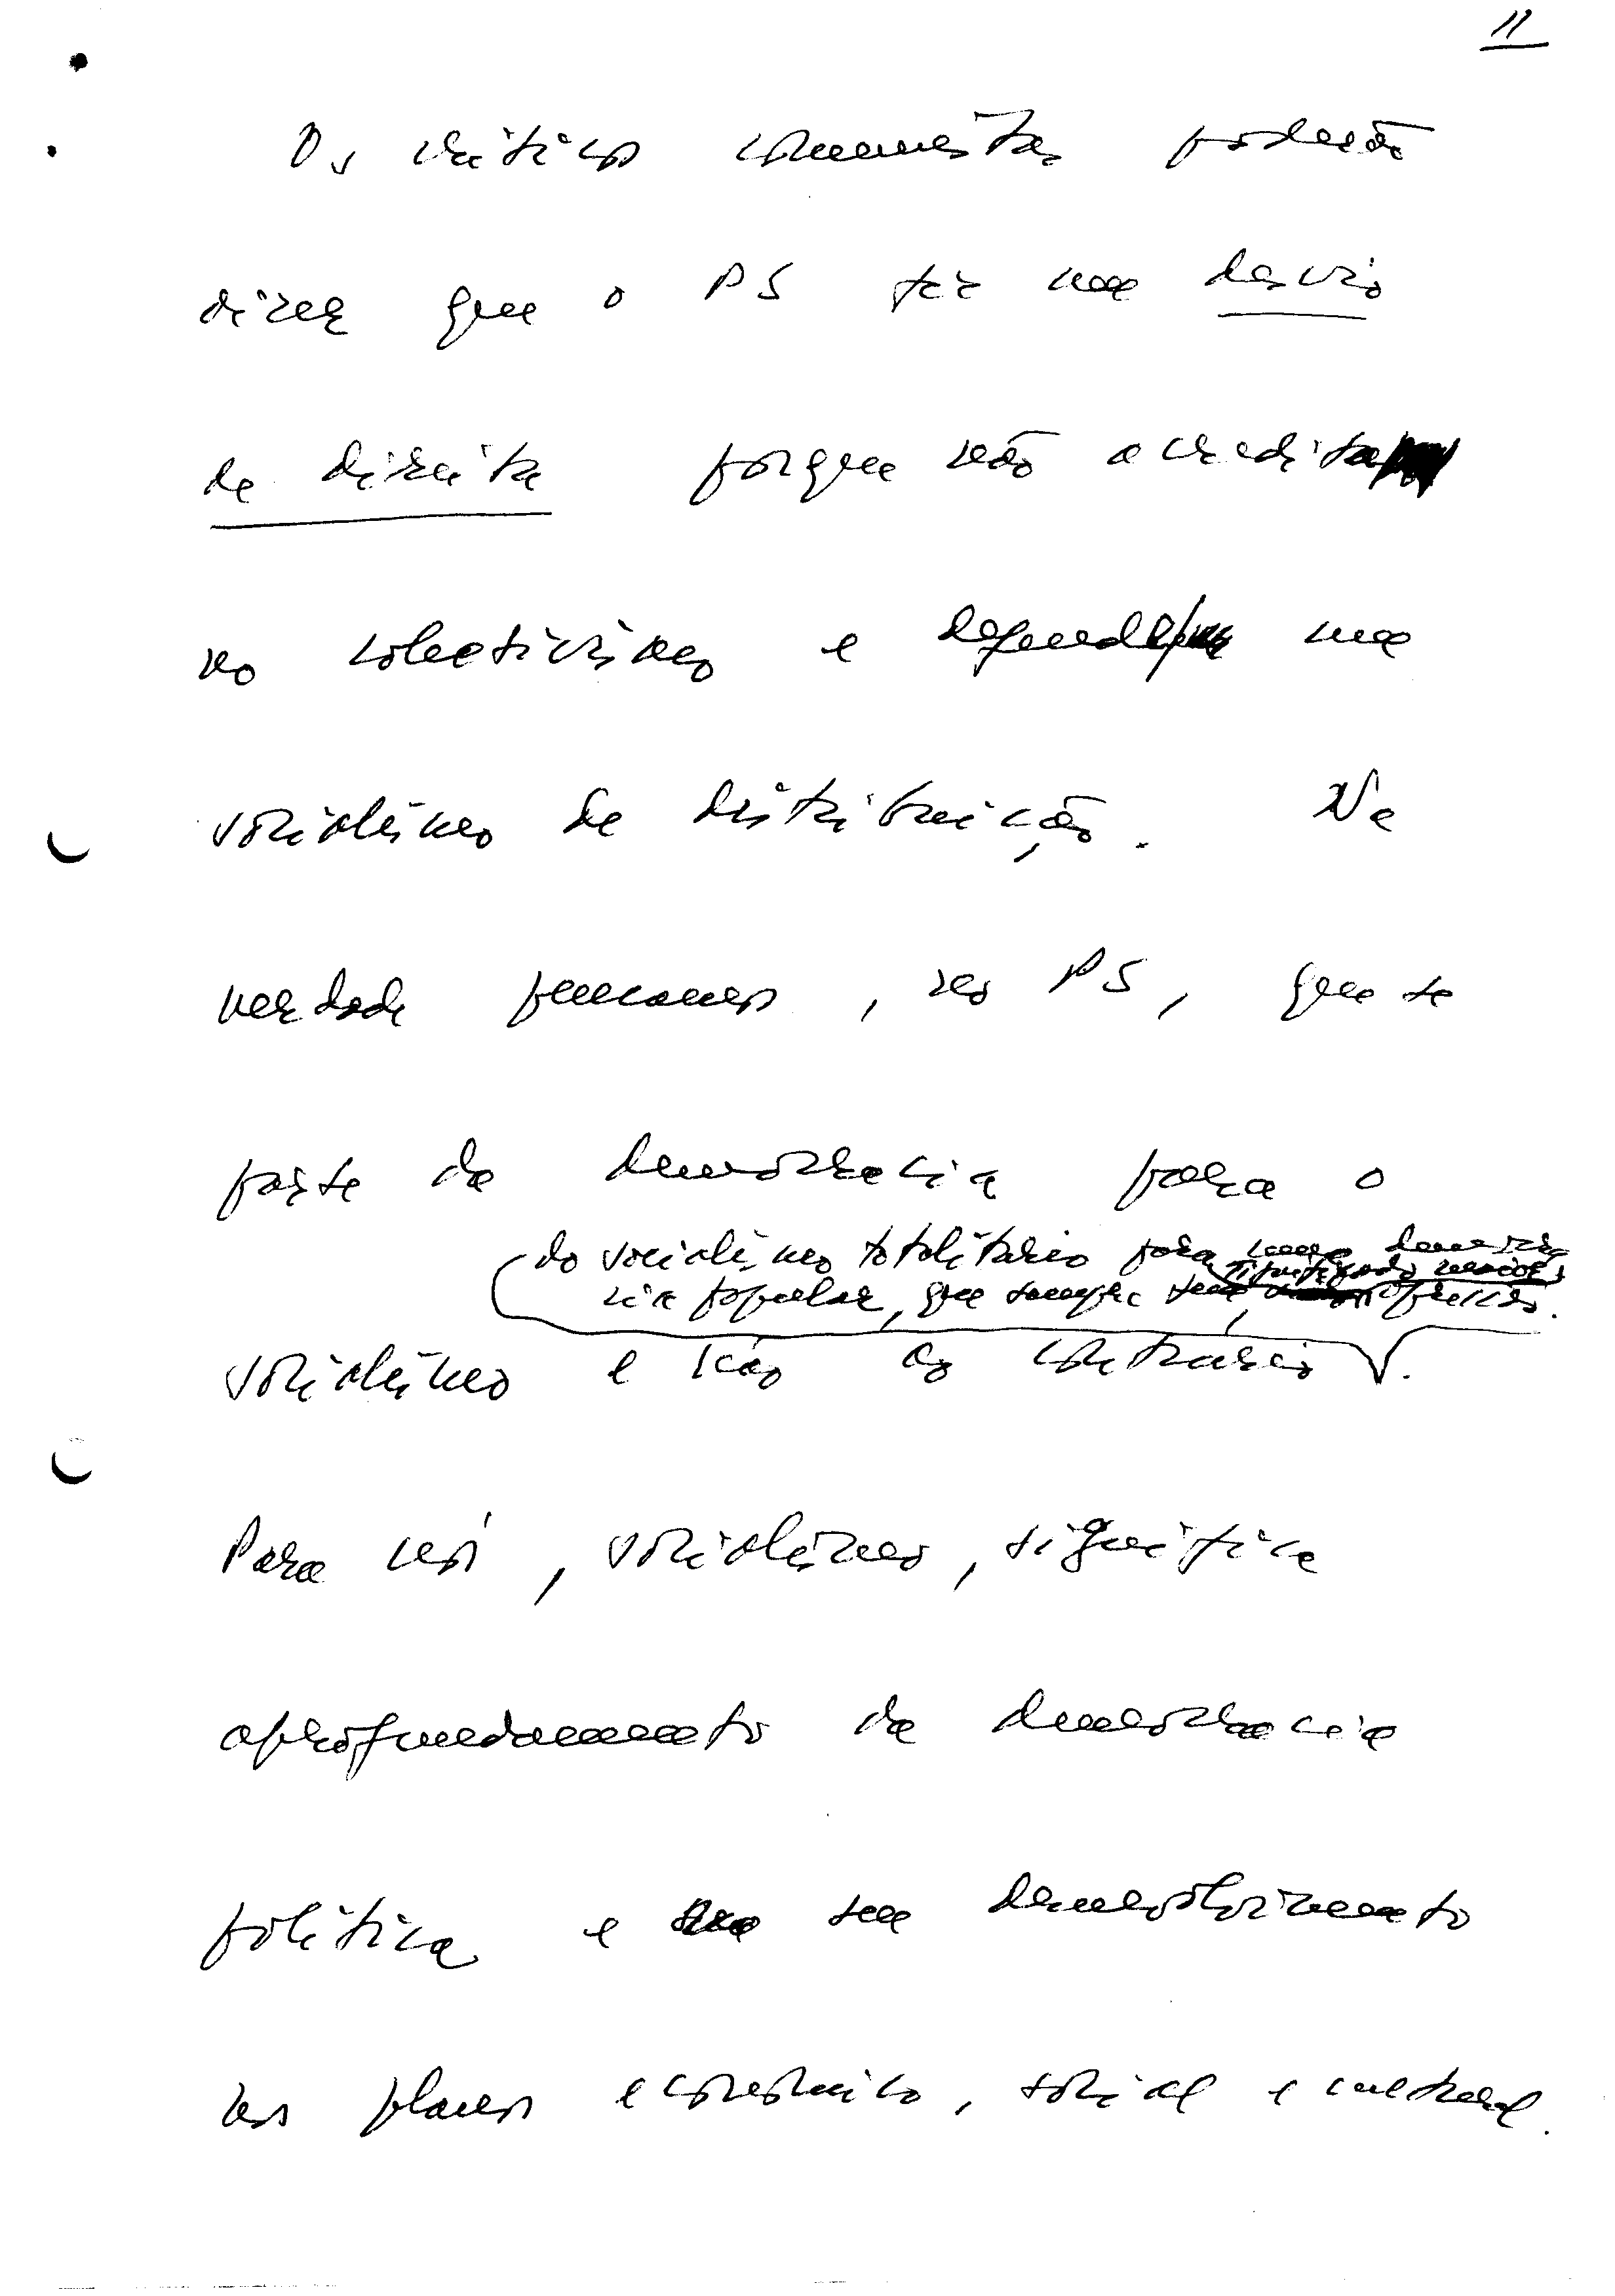 11
Os críticos comunistas poderão
dizer que o PS fez um desvio
de direita porque não acredita
no colectivismo e defende um
socialismo de distribuição. Na
verdade pensamos, no PS, que se
parte da democracia para o
do socialismo totalitário para uma democra
cia popular, que sempre tem
socialismo e não ao contrário.
Para nós, socialismo, significa
aprofundamento da democracia
política e seu desenvolvimento
nos planos económico, social e cultural.